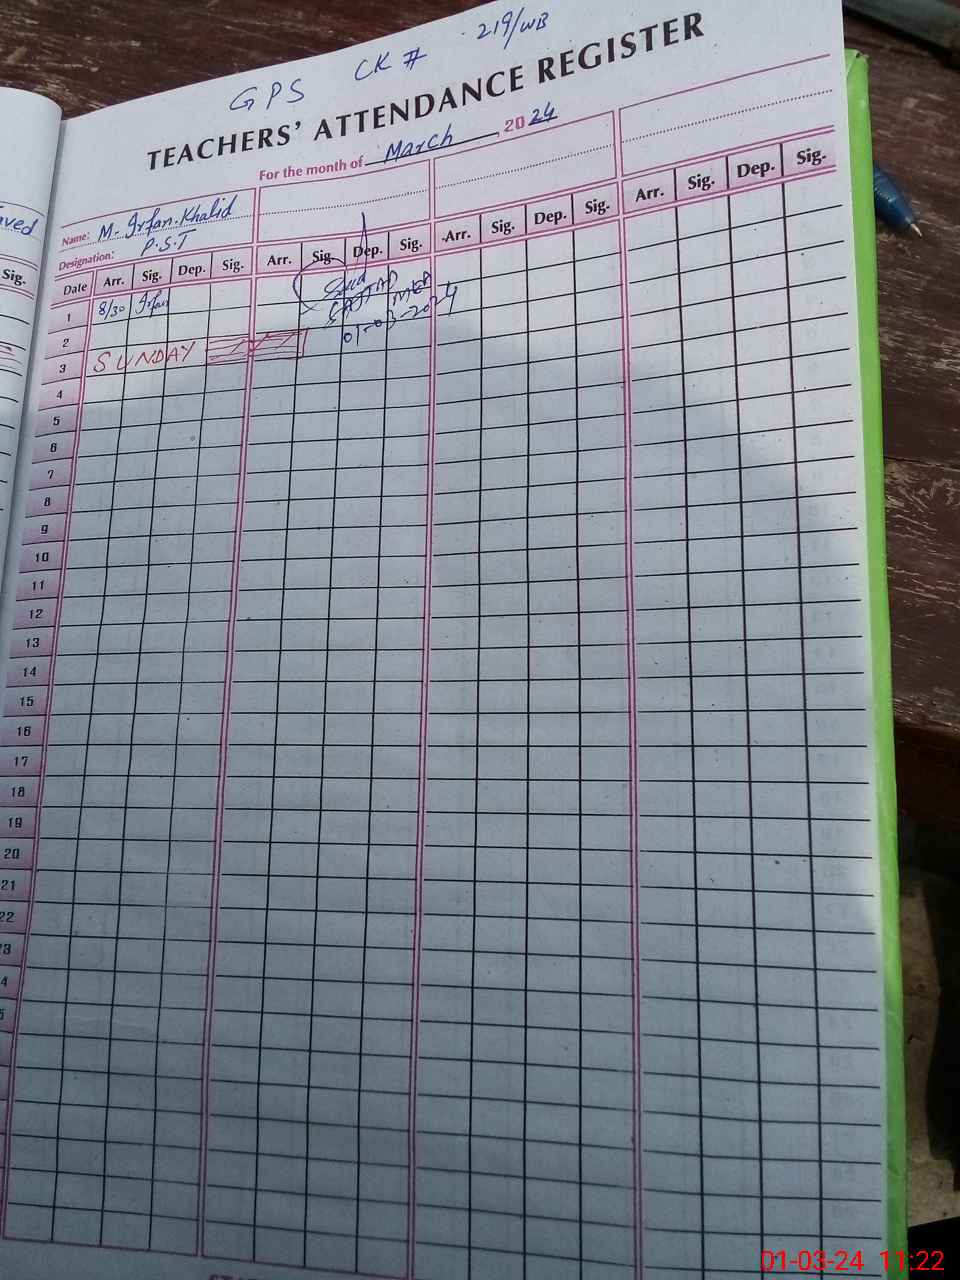 GPS CK # 219/WB
TEACHERS' ATTENDANCE REGISTER
For the month of March, 2024
Name: M. Irfan Khalid
Designation: P.S.T
Date Arr. Sig. Dep. Sig. Arr. Sig. Dep. Sig. Arr. Sig. Dep. Sig. Arr. Sig. Dep. Sig.
1 8/30 Irfan
SAJJAD MEA
01-03-2024
2
3 SUNDAY
4
5
6
7
8
9
10
11
12
13
14
15
16
17
18
19
20
21
22
Sig.
01-03-24 11:22